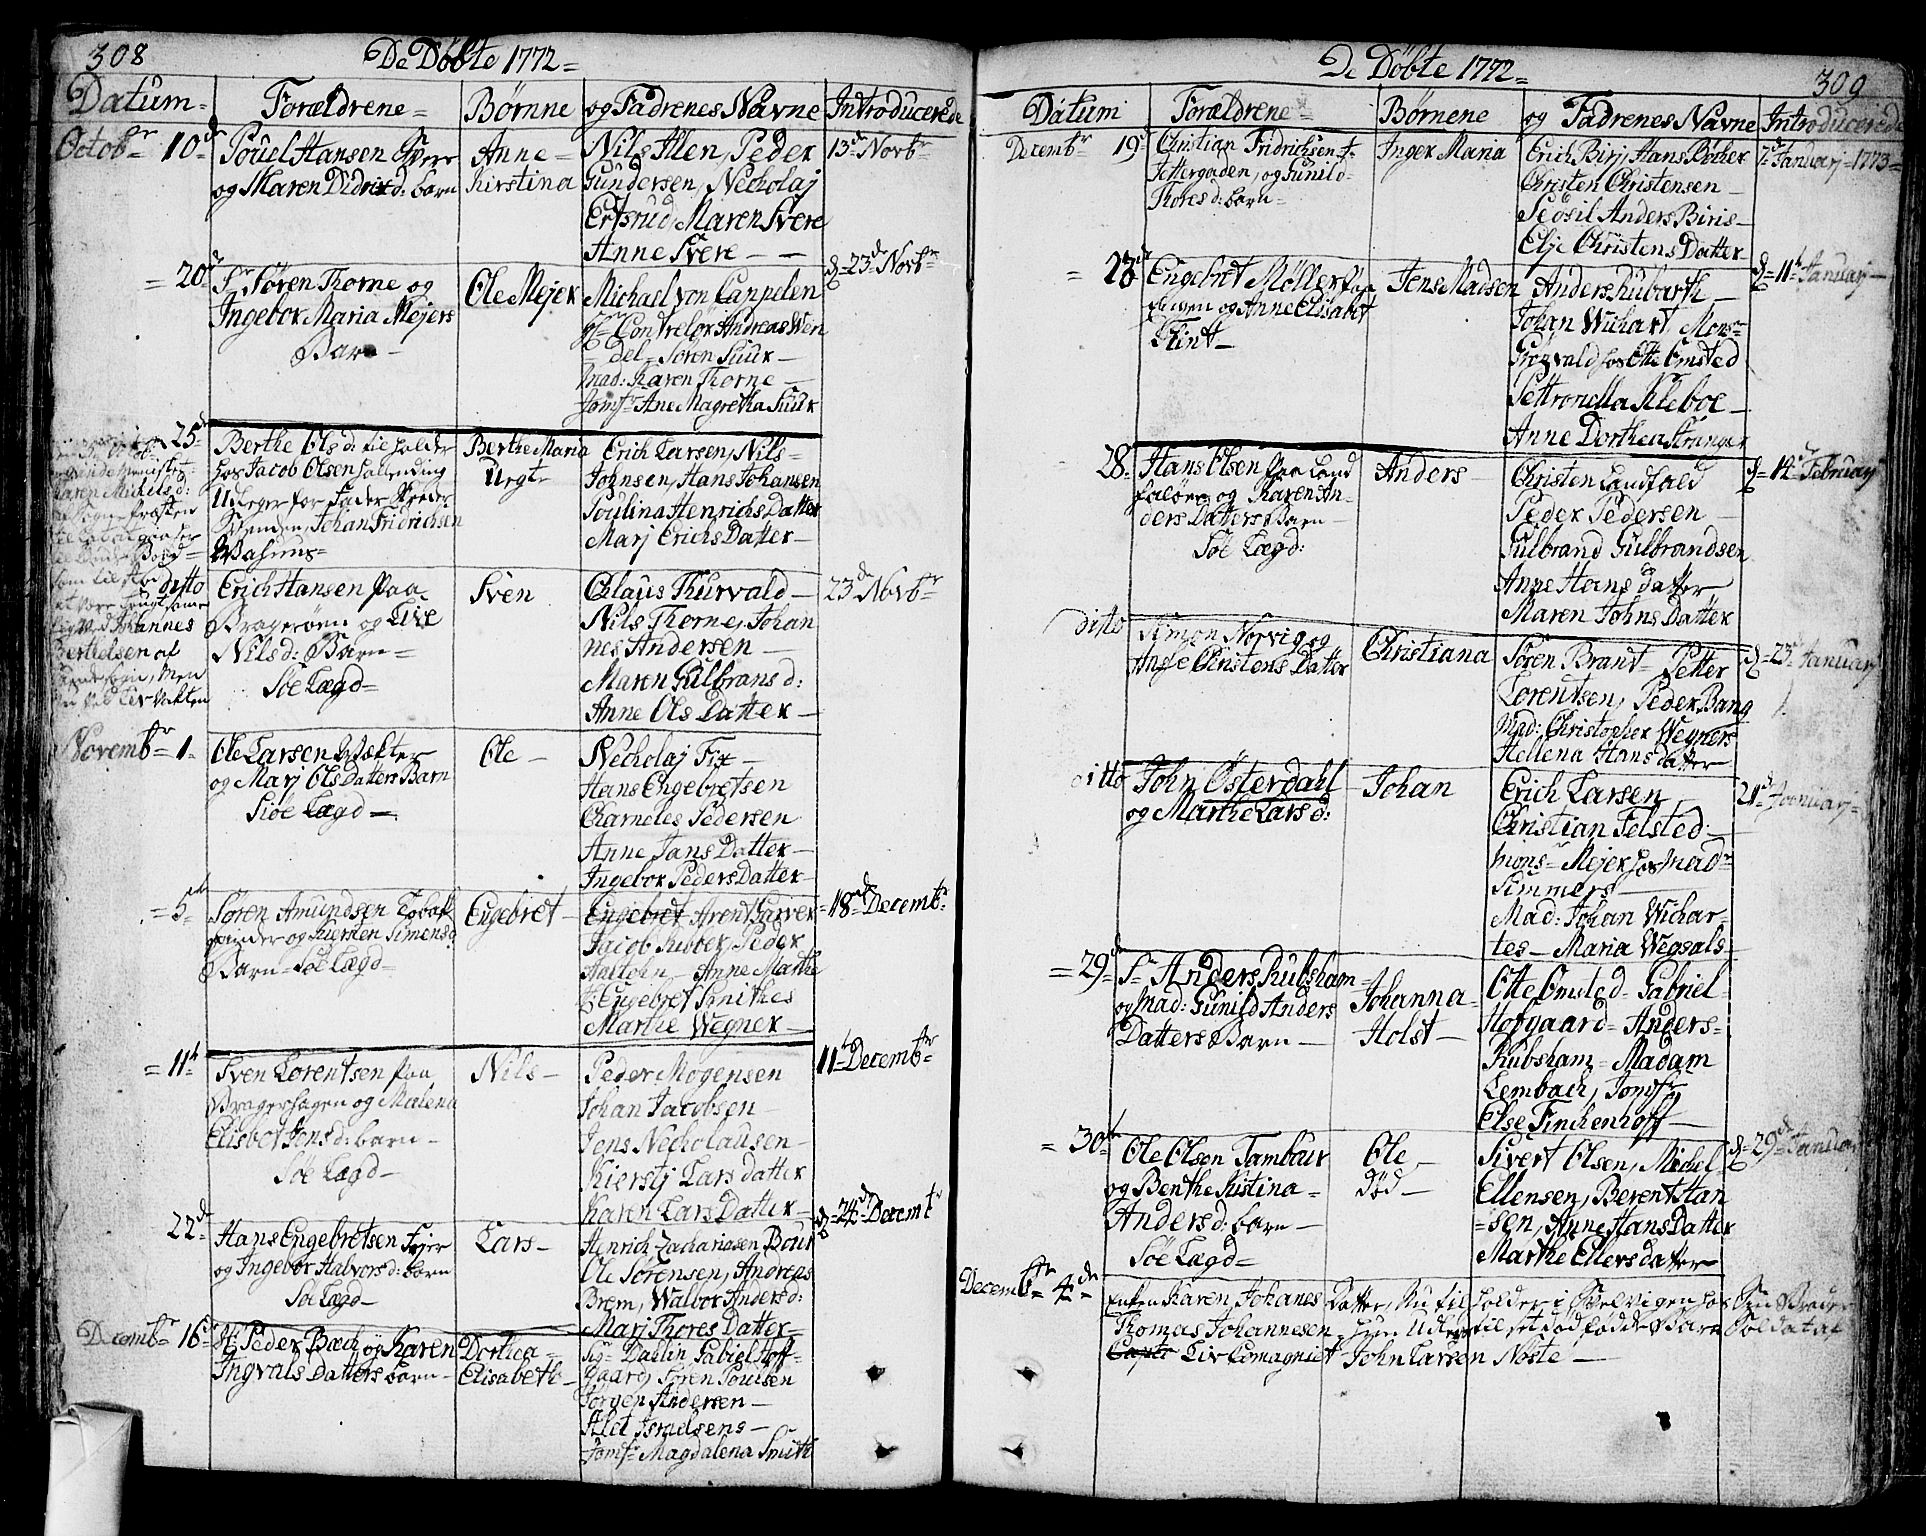 308
De Döbte 1772=
Datum=
Forældrene=
Børnne
og Fadrenes Navne
Introducerede
Octobr= 10de
Poüel Hansen Svere
og Maren Didrixd: barn
Anne=
Kirstina
Nils Allen, Peder
Gundersen, Necholaj
Ertsrud, Maren Svere
Anne Svere
13d Novbr
= 20d
Sr Sören Thorne og
Ingebor Maria Mejers
Barn
Ole Mejer
Michael von Cappelen
Hr Contrelör Andreas Wen
= del= Sören Siux
Mad: Karen Thorne
Jomfr Ane Magretha Siux
d= 23d Novbr
25d
Berthe Ols d: til holder
hos Jacob Olsen
Udleger for Fader
Johan Fridrichsen
Berthe Maria
Uegte
Erich Larsen, Nils=
Johnsen, Hans Johansen
Poulina Henrichs Datter
Marj Erichs Datter
Karen Michels d:
Johannes
Berthelsen af
ditto
Erich Hansen paa
Bragerøen og Live
Nilsd: Barn=
Söe Lægd=
Sven
Claus Thurvald
Nils Thorne, Johan
nes Andersen
Maren Gulbrans d:
Anne Ols Datter
23d Novbr
Novembr= 1
Ole Larsen Wekter
og Marj Ols Datters Barn
Siöe Lægd
Ole
Necholaj Fix
Hans Engebretsen
Charneles Pedersen
Anne Jans Datter
Ingebor Peders Datter
= 5te
Sören Amundsen Tobak
spinder og Kiersten Simensd
Barn= Söe Lægd=
Engebret
Engebret Arent Harrex
Jacob Kuster, Peder
Anne Marthe
Engebret Smithes
Marthe Wegner
18de Decembr
= 11t
Sven Lorentsen paa
Bragerhagen og Malena
Elisbet Jens d: barn
Söe Lægd
Nils
Peder Mogensen
Johan Jacobsen
Jens Necholausen
Kierstj Lars datter
Karen Lars Datter
11t Decembr
22d
Hans Engebretsen Fejer
og Ingebor Halvorsd: barn
Söe Lægd
Lars
Henrich Zachariasen Bour
Ole Sörensen, Andreas
Brem, Walbor Andersd:
Marj Thores Datter
d= 24d Decemtr
Decembr 16de
Hr Peder Bæch og Karen
Ingvals Datters barn
Dorthea=
Elisabeth
Sr Dallin Gabiel Hoff=
gaard, Sören Poulsen
Jörgen Andersen
Alet Israelsens
Jomfr Magdalena Smith
De Döbte 1772=
309
Datum
Forældrene=
Børnene
og Fadrenes Navne
Introducerede
Decembr 19d
Christian Fridrichsen i
Fettergaden, og Gunild
Thores d: barn
Inger Maria
Erich Birj, Hans Becher
Christen Christensen
Sedsil Anders Biris
Elje Christens Datter
1t Januarj 1773=
= 23d
Engebret Möller paa
og Anne Elisabet
Flint
Jens Madsen
Anders Kubarth
Johan Wichart Monsr
Gregvald hos Otte Omsted
Pettronella Kleboe
Anne Dorthea Stranger
d= 11t Januarj
28
Hans Olsen paa Land
falöen og Karen An-
ders Datters Barn
Söe Lægd:
Anders
Christen Landfald
Peder Pedersen
Gulbrand Gulbrandsen
Anne Hans datter
Maren Johns Datter
d= 14d Februarj
ditto
Simon Norvig og
Ansje Christens Datter
Christiana
Sören Brant Petter
Lorentsen, Peder Bang
Mad: Christopher Wegners
Hellena Hans datter
d= 23d Januarj
ditto
John Østerdahl
og Marthe Lars d:
Johan
Erich Larsen
Christian Felsted
Mons: Mejer hos Mad
Simmers
Mad: Johan Wichar-
tes Maria Wegsals
21d Januarj
= 29d
Sr Anders Kubsham
og Mad: Gunild Anders
Datters Barn
Johanna
Holst
Otte Omsted= Gabriel
Hofgaard= Anders=
Kubsham Madam
Lembach, Jomfr
Else Finchenhoff
= 30te
Ole Olsen Tambour
og Benthe Kistina=
Anders d: barn
Söe Lægd=
Ole
död
Sivert Olsen, Michel
Ellensen, Berent Han
=sen, Anne Hans Datter
Marthe Ellers datter
d= 29d Januarj
Decembr 4de
Enken Karen Johanes Datter, Nu til holder i Svelvigen hos Sin Broder
Thomas Johannesen, Hun Udleger til set död födde Barn Soldat af
Capte Liv Comagniet John Larsen Noste